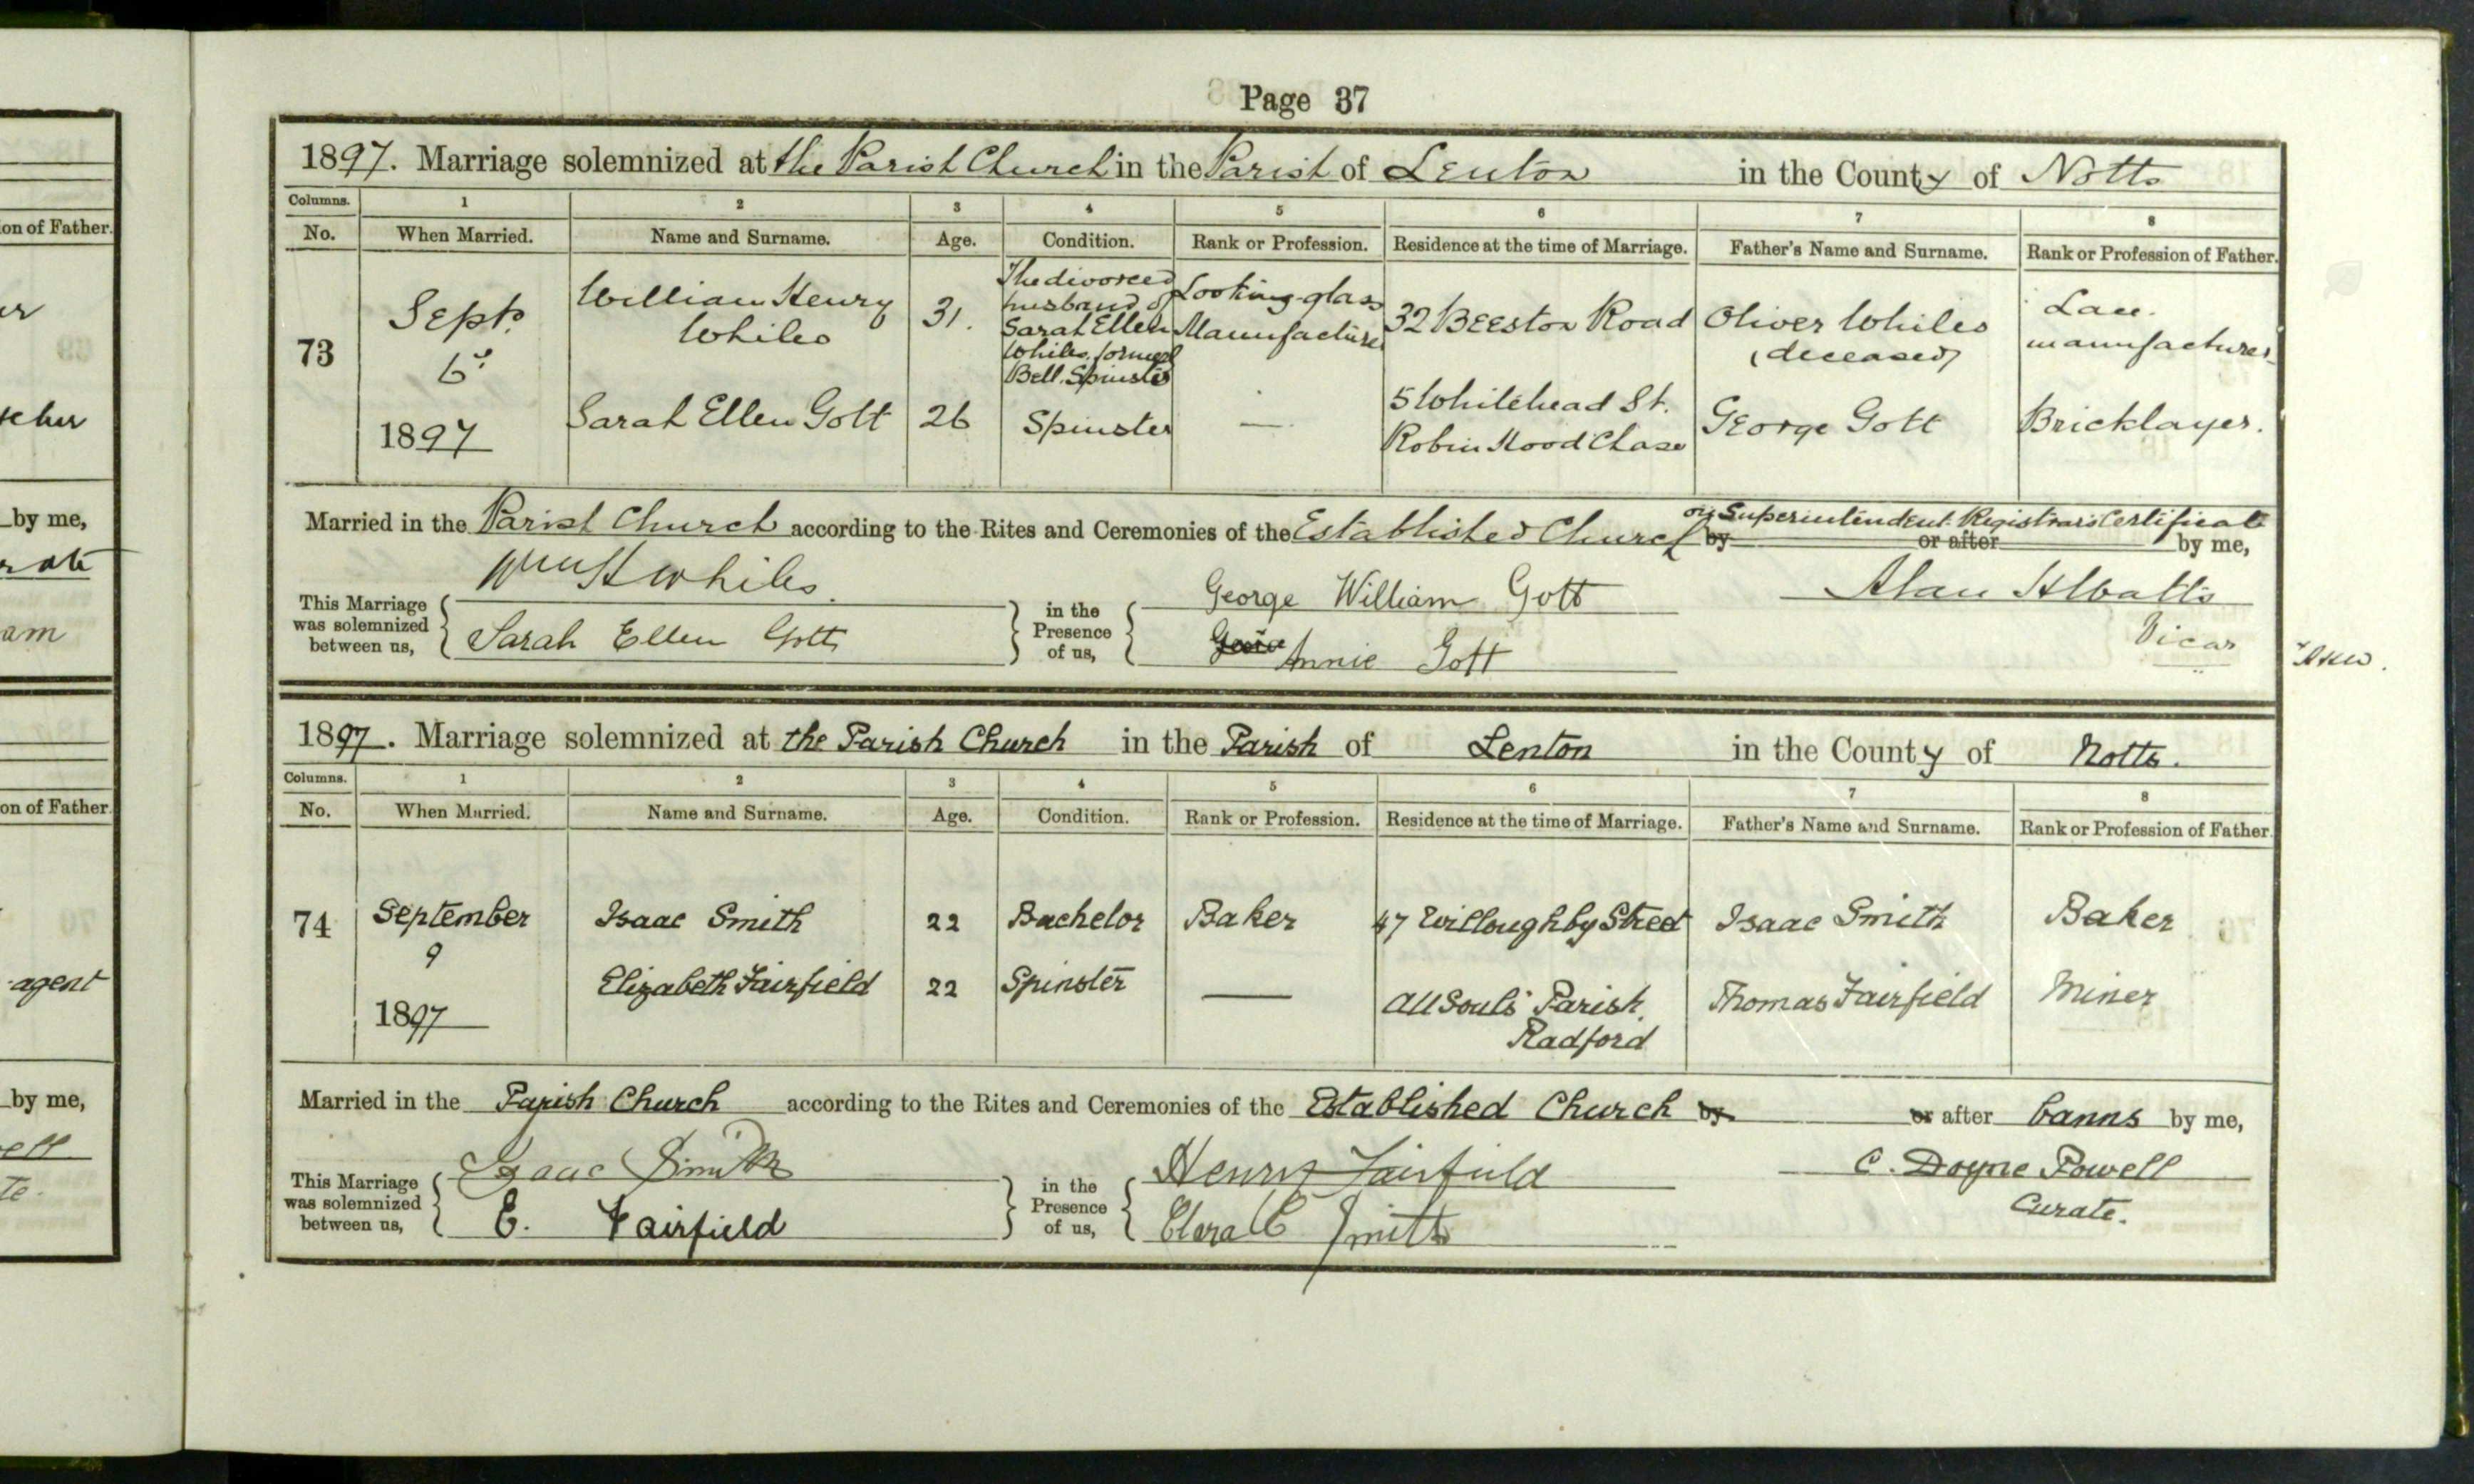 Page 37
1897. Marriage solemnized at the Parish Church in the Parish of Lenton in the County of Notts
Columns. 1 2 3 4 5 6 7 8
No. When Married. Name and Surname. Age. Condition. Rank or Profession. Residence at the time of Marriage. Father's Name and Surname. Rank or Profession of Father.
73 Sept. 6th 1897
William Henry Whiles 31. The divorced husband of Sarah Ellen Whiles formerly Bell. Spinster Looking-glass Manufacturer 32 Beeston Road Oliver Whiles (deceased) Lace manufacturer
Sarah Ellen Gott 26 Spinster — 5 Whitehead St. Robin Hood Chase George Gott Bricklayer.
Married in the Parish Church according to the Rites and Ceremonies of the Established Church by or after on Superintendent Registrar's Certificate by me,
Wm H Whiles. George William Gott Alan
This Marriage was solemnized between us, Sarah Ellen Gott in the Presence of us, Annie Gott Vicar
1897. Marriage solemnized at the Parish Church in the Parish of Lenton in the County of Notts.
Columns. 1 2 3 4 5 6 7 8
No. When Married. Name and Surname. Age. Condition. Rank or Profession. Residence at the time of Marriage. Father's Name and Surname. Rank or Profession of Father.
74 September 9 1897
Isaac Smith 22 Bachelor Baker 47 Willoughby Street Isaac Smith Baker
Elizabeth Fairfield 22 Spinster — All Souls' Parish. Radford Thomas Fairfield Miner
Married in the Parish Church according to the Rites and Ceremonies of the Established Church by or after banns by me,
Isaac Smith Henry Fairfield C. Doyne Powell
This Marriage was solemnized between us, E. Fairfield in the Presence of us, Clara C Smith Curate.
on of Father.
by me,
am
on of Father
agent
by me,